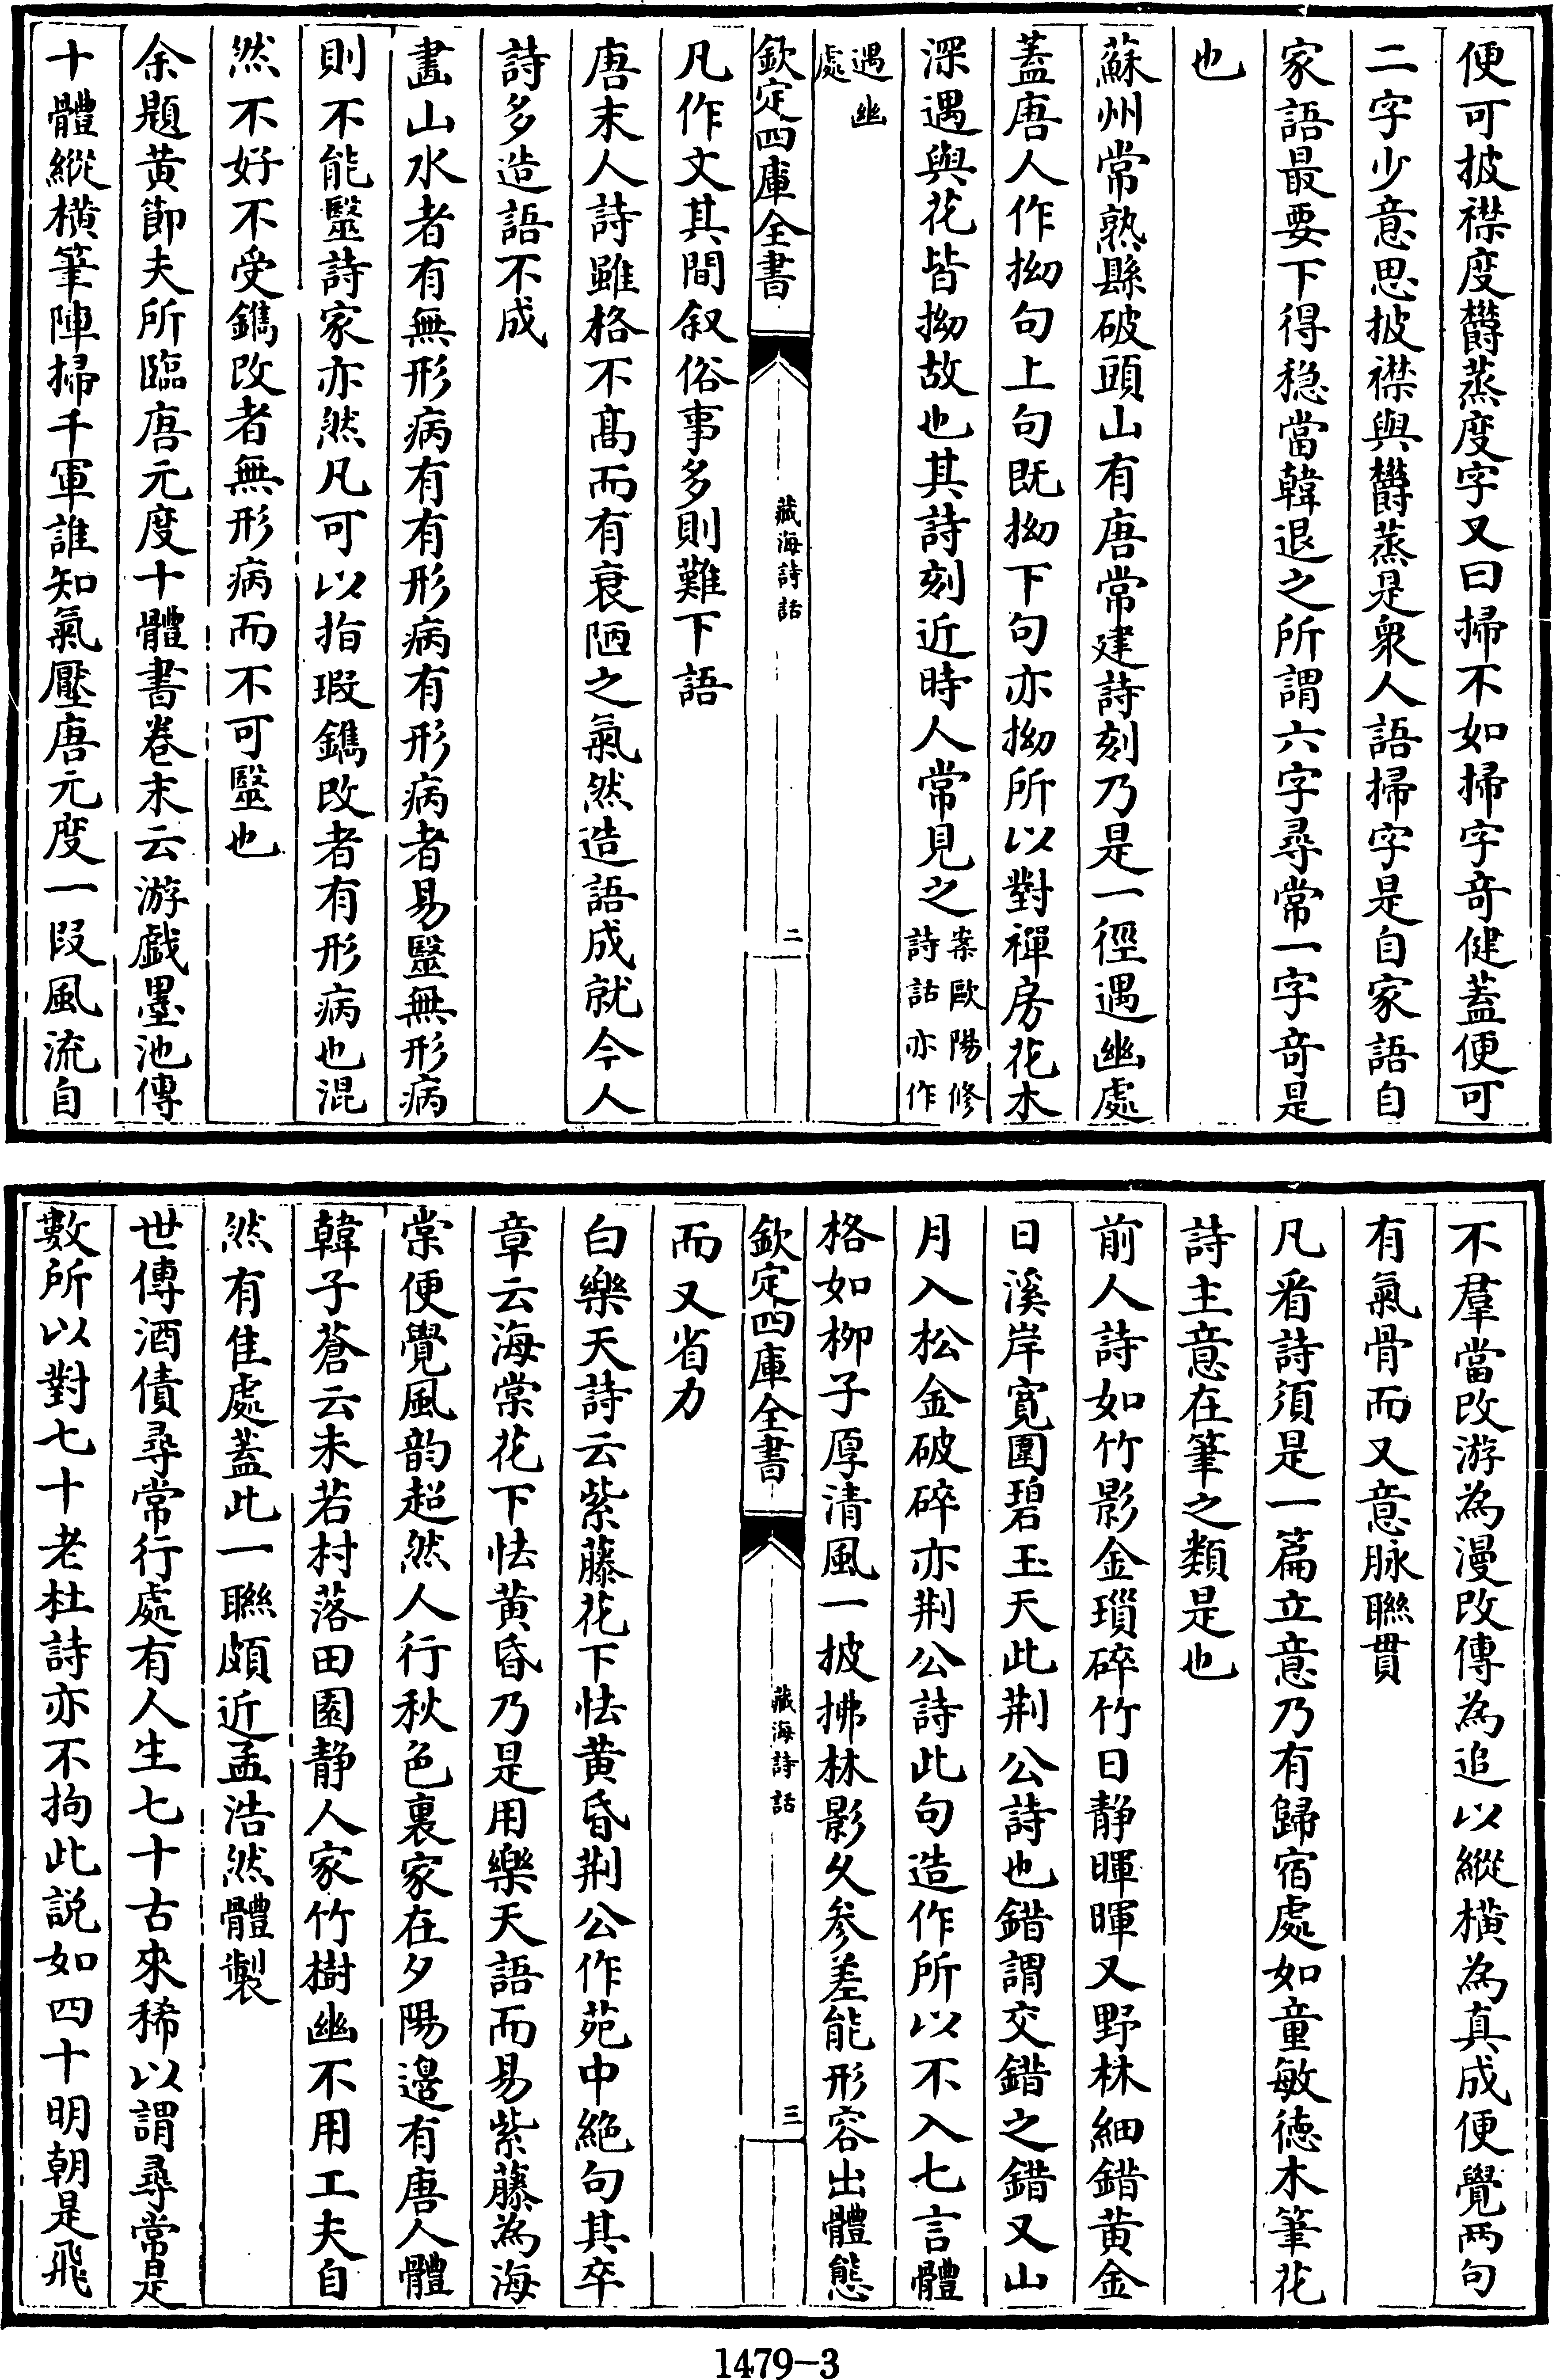 便可披襟度欝蒸度字又曰掃不如掃字竒健蓋便可
二字少意思披襟與欝蒸是衆人語掃字是自家語自
家語最要下得穏當韓退之所謂六字尋常一字竒是
也
蘇州常熟縣破頭山有唐常建詩刻乃是一徑遇幽處
蓋唐人作拗句上句既拗下句亦拗所以對禪房花木
深遇與花皆拗故也其詩刻近時人常見之案歐陽修
詩話亦作
遇幽
處
欽定四庫全書
藏海詩話
二
凡作文其間叙俗事多則難下語
唐末人詩雖格不髙而有衰陋之氣然造語成就今人
詩多造語不成
畵山水者有無形病有有形病有形病者易毉無形病
則不能毉詩家亦然凡可以指瑕鐫改者有形病也混
然不好不受鐫改者無形病而不可毉也
余題黄節夫所臨唐元度十體書卷末云游戯墨池傳
十體縱横筆陣掃千軍誰知氣壓唐元度一段風流自
不羣當改游為漫改傳為追以縱横為真成便覺两句
有氣骨而又意脉聯貫
凡看詩須是一篇立意乃有歸宿處如童敏徳木筆花
詩主意在筆之類是也
前人詩如竹影金瑣碎竹日静暉暉又野林細錯黄金
日溪岸寛圍碧玉天此荆公詩也錯謂交錯之錯又山
月入松金破碎亦荆公詩此句造作所以不入七言體
格如柳子厚清風一披拂林影久参差能形容出體態
欽定四庫全書
藏海詩話
三
而又省力
白樂天詩云紫藤花下怯黄昏荆公作苑中絶句其卒
章云海棠花下怯黄昏乃是用樂天語而易紫藤為海
棠便覺風韵超然人行秋色裏家在夕陽邉有唐人體
韓子蒼云未若村落田園静人家竹樹幽不用工夫自
然有佳處蓋此一聯頗近孟浩然體製
世傳酒債尋常行處有人生七十古來稀以謂尋常是
數所以對七十老杜詩亦不拘此説如四十明朝是飛
1479-3